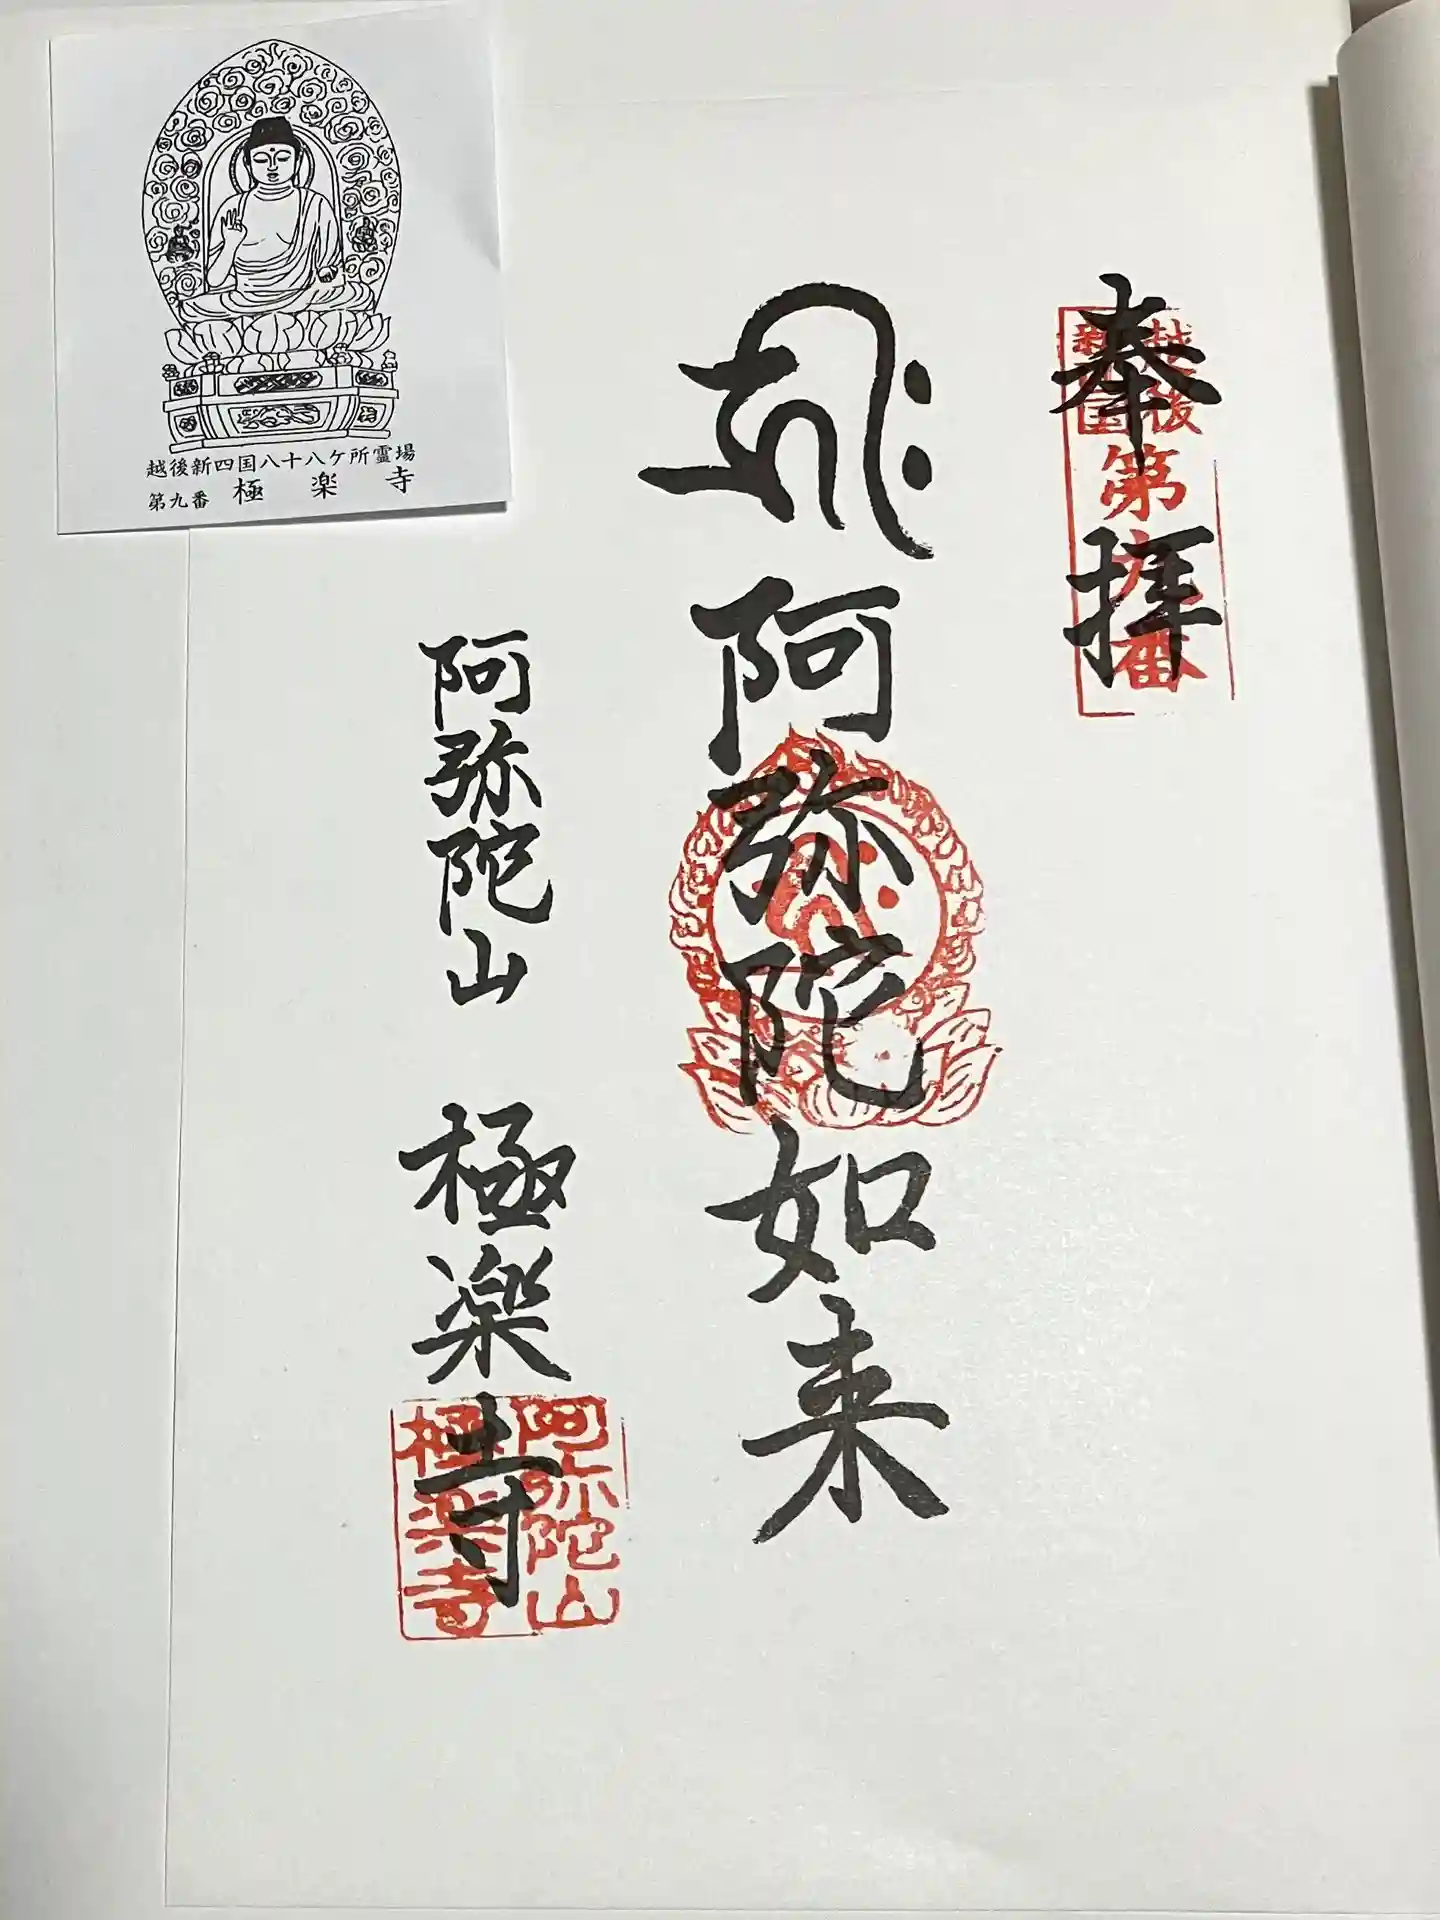 奉拝
越後
新四国
第九番
𑖮𑖿𑖨𑖱𑖾
阿弥陀如来
阿弥陀山 極楽寺
阿弥陀山
極楽寺
越後新四国八十八ケ所霊場
第九番 極楽寺